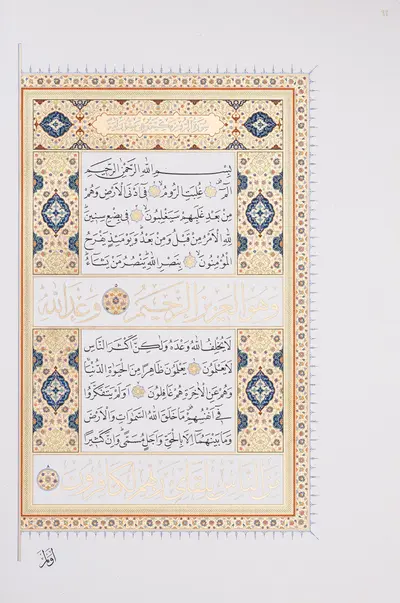 بِسْمِ اللهِ الرَّحْمٰنِ الرَّحِيمِ
الٓمٓ غُلِبَتِ الرُّومُ فِى اَدْنَى الْاَرْضِ وَهُمْ
مِنْ بَعْدِ غَلَبِهِمْ سَيَغْلِبُونَ فِى بِضْعِ سِنِينَ
لِلّٰهِ الْاَمْرُ مِنْ قَبْلُ وَمِنْ بَعْدُ وَيَوْمَئِذٍ يَفْرَحُ
الْمُؤْمِنُونَ بِنَصْرِ اللهِ يَنْصُرُ مَنْ يَشَاءُ
وَهُوَ الْعَزِيزُ الرَّحِيمُ وَعْدَ اللهِ
لَا يُخْلِفُ اللهُ وَعْدَهُ وَلٰكِنَّ اَكْثَرَ النَّاسِ
لَا يَعْلَمُونَ يَعْلَمُونَ ظَاهِرًا مِنَ الْحَيٰوةِ الدُّنْيَا
وَهُمْ عَنِ الْاٰخِرَةِ هُمْ غَافِلُونَ اَوَلَمْ يَتَفَكَّرُوا
فِى اَنْفُسِهِمْ مَا خَلَقَ اللهُ السَّمٰوَاتِ وَالْاَرْضَ
وَمَا بَيْنَهُمَا اِلَّا بِالْحَقِّ وَاَجَلٍ مُسَمًّى وَاِنَّ كَثِيرًا
مِنَ النَّاسِ بِلِقَاءِ رَبِّهِمْ لَكَافِرُونَ
اَوَلَمْ